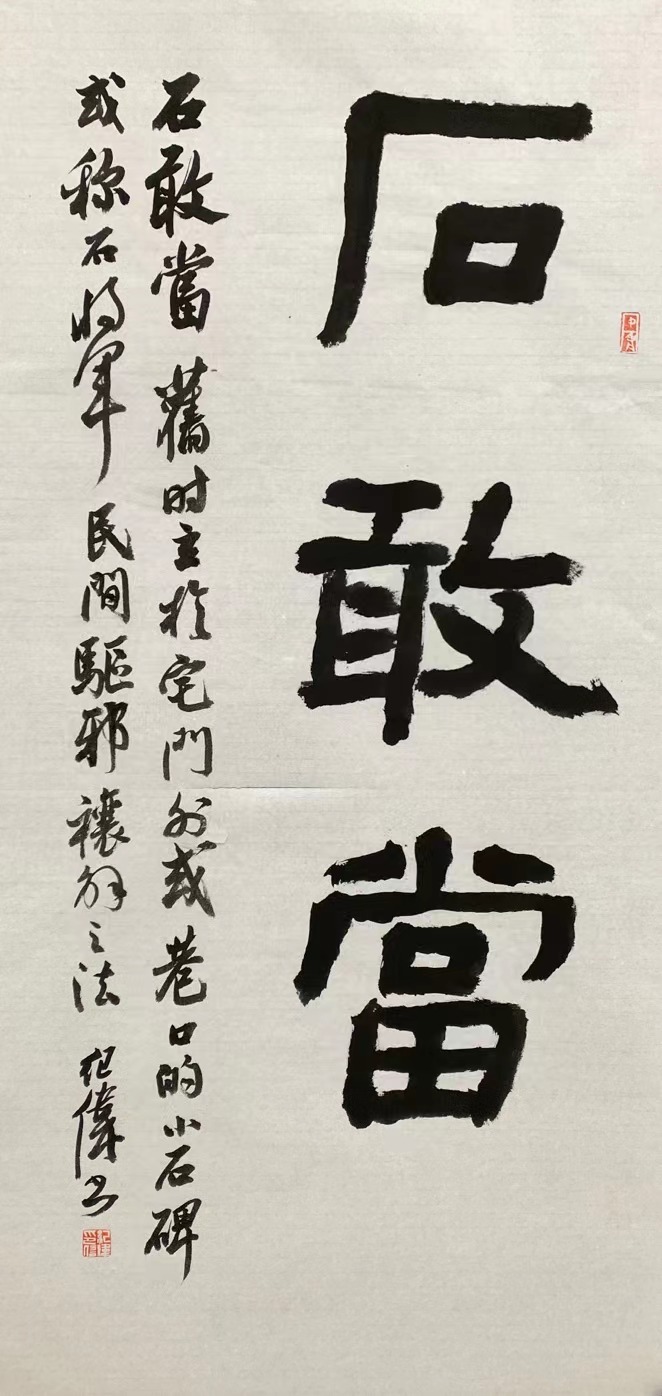 石敢當
石敢當舊时立於宅門外或巷口的小石碑
或称石将軍民間驅邪禳解之法纪偉书